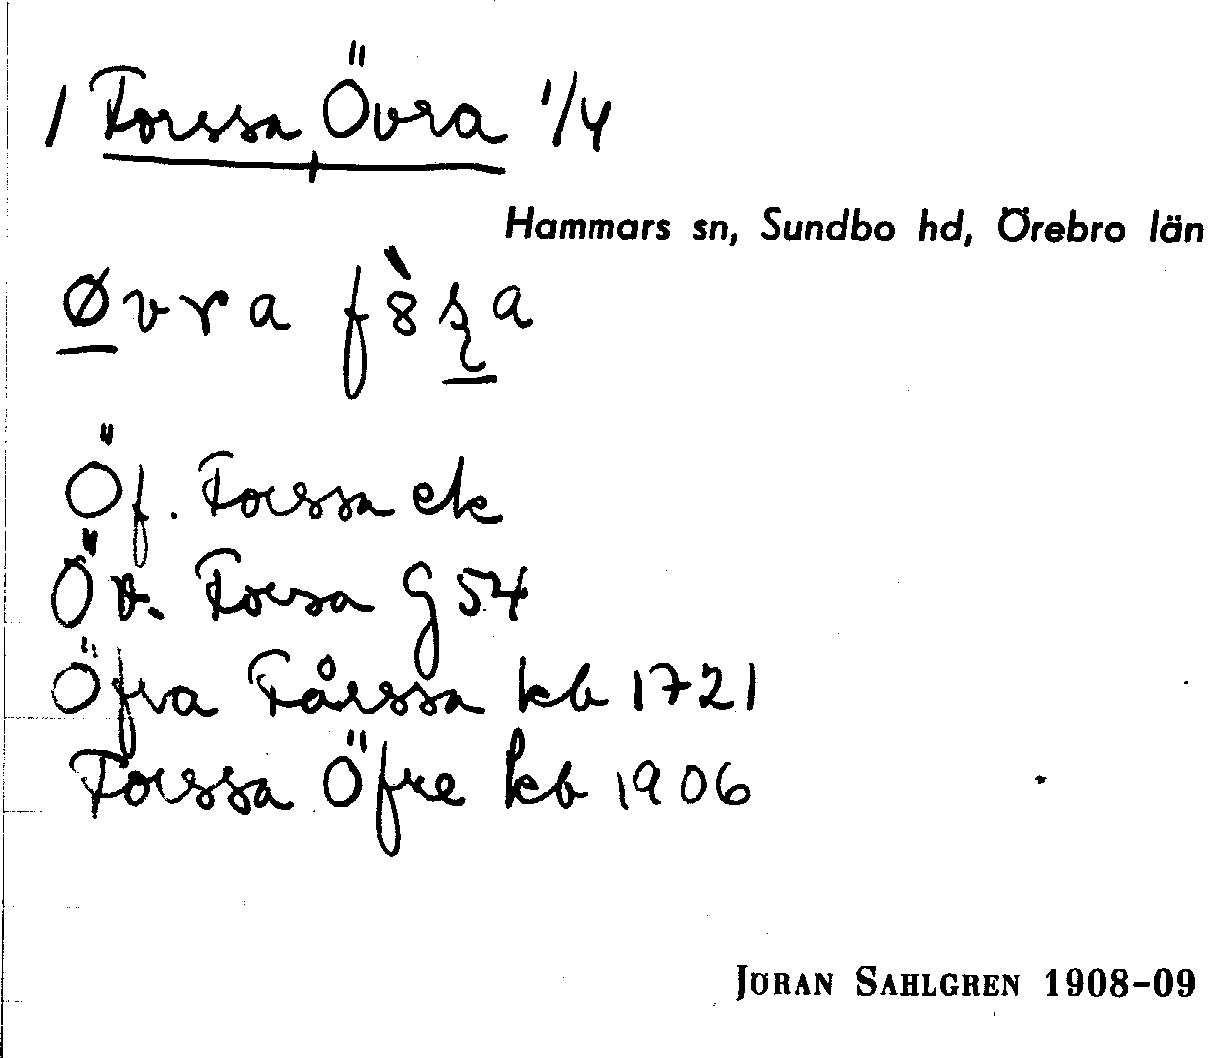 1 Forssa Övra 1/4
Hammars sn, Sundbo hd, Örebro län
Øvra
Öf. Forssa ek
Öv. Forsa G 54
Öfra Fårssa kb 1721
Forssa Öfre kb 1906
JÖRAN SAHLGREN 1908-09